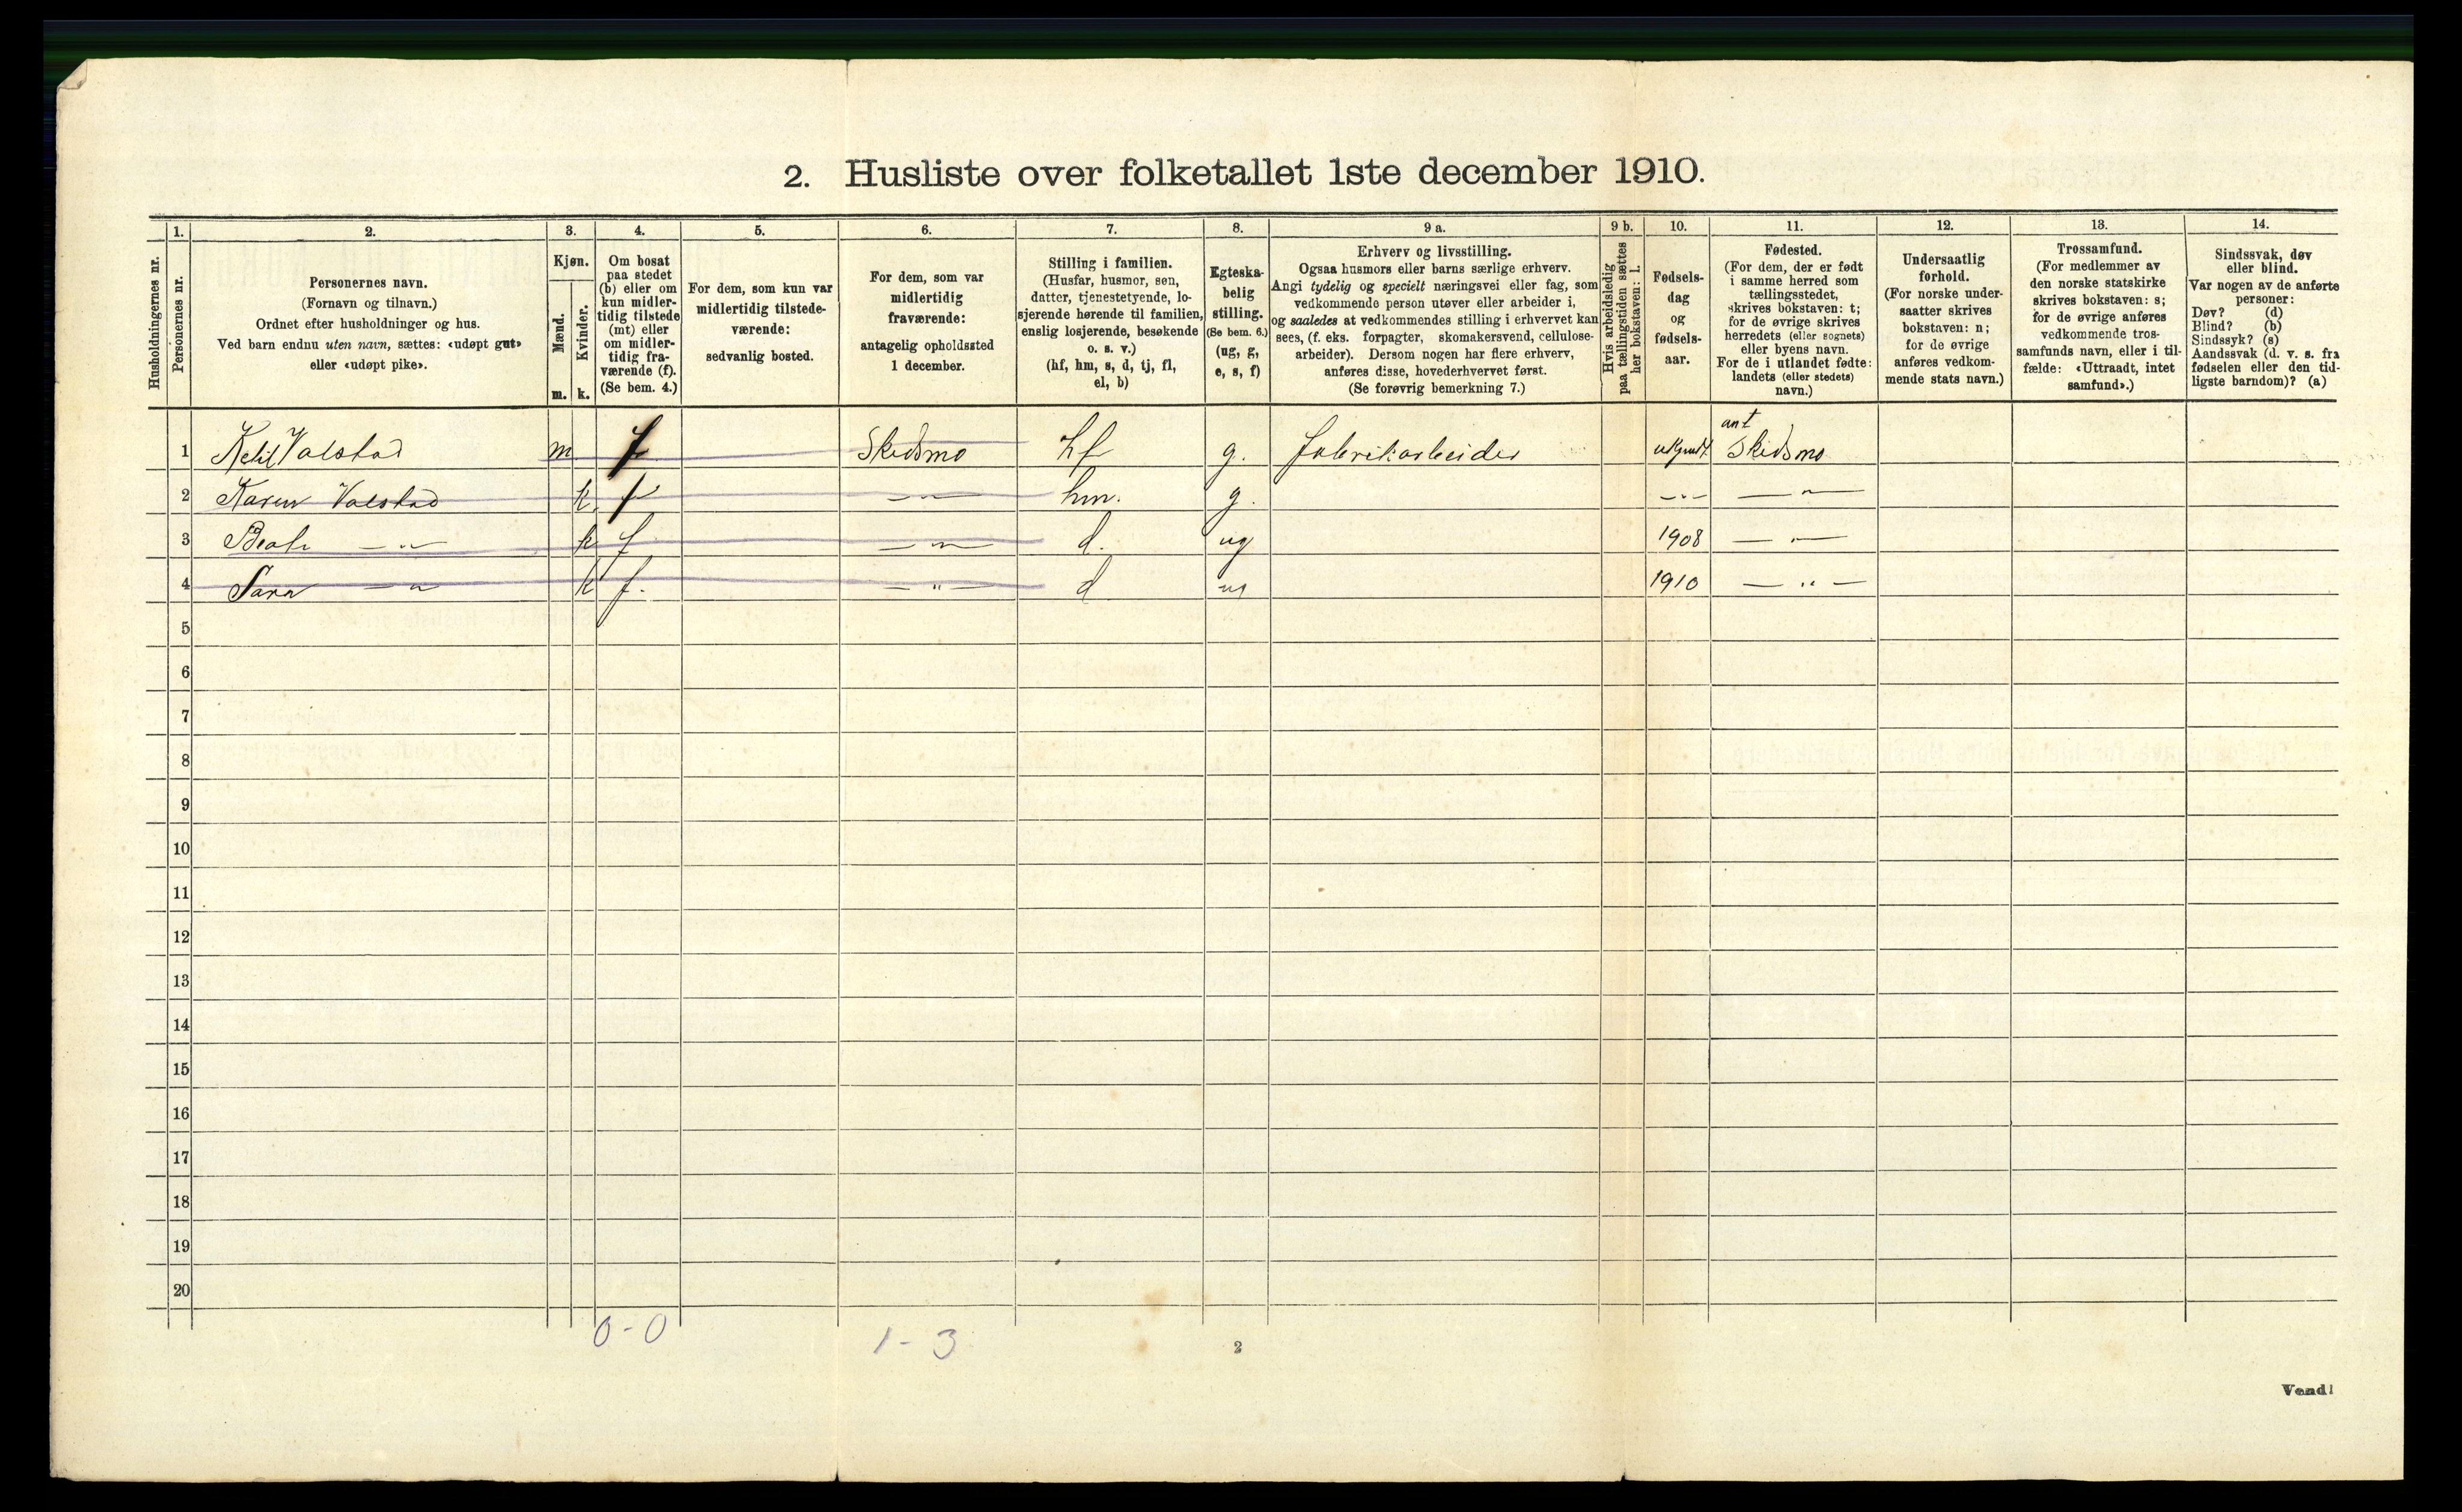 2. Husliste over folketallet 1ste december 1910.
Husholdningernes nr.
1.
Personernes nr.
2.
Personernes navn.
(Fornavn og tilnavn.)
Ordnet efter husholdninger og hus.
Ved barn endnu uten navn, sættes: «udøpt gut»
eller «udøpt pike».
3.
Kjøn.
Mænd.
m.
Kvinder.
k.
4.
Om bosat
paa stedet
(b) eller om
kun midler-
tidig tilstede
(mt) eller
om midler-
tidig fra-
værende (f).
(Se bem. 4.)
5.
For dem, som kun var
midlertidig tilstede-
værende:
sedvanlig bosted.
6.
For dem, som var
midlertidig
fraværende:
antagelig opholdssted
1 december.
7.
Stilling i familien.
(Husfar, husmor, søn,
datter, tjenestetyende, lo-
sjerende hørende til familien,
enslig losjerende, besøkende
o. s. v.)
(hf, hm, s, d, tj, fl,
el, b)
8.
Egteska-
belig
stilling.
(Se bem. 6.)
(ug, g,
e, s, f)
9 a.
Erhverv og livsstilling.
Ogsaa husmors eller barns særlige erhverv.
Angi tydelig og specielt næringsvei eller fag, som
vedkommende person utøver eller arbeider i,
og saaledes at vedkommendes stilling i erhvervet kan
sees, (f. eks. forpagter, skomakersvend, cellulose-
arbeider). Dersom nogen har flere erhverv,
anføres disse, hovederhvervet først.
(Se forøvrig bemerkning 7.)
9 b.
Hvis arbeidsledig
paa tællingstiden sættes
her bokstaven: l.
10.
Fødsels-
dag
og
fødsels-
aar.
11.
Fødested.
(For dem, der er født
i samme herred som
tællingsstedet,
skrives bokstaven: t;
for de øvrige skrives
herredets (eller sognets)
eller byens navn.
For de i utlandet fødte:
landets (eller stedets)
navn.)
12.
Undersaatlig
forhold.
(For norske under-
saatter skrives
bokstaven: n;
for de øvrige
anføres vedkom-
mende stats navn.)
13.
Trossamfund.
(For medlemmer av
den norske statskirke
skrives bokstaven: s;
for de øvrige anføres
vedkommende tros-
samfunds navn, eller i til-
fælde: «Uttraadt, intet
samfund».)
14.
Sindssvak, døv
eller blind.
Var nogen av de anførte
personer:
Døv? (d)
Blind? (b)
Sindssyk? (s)
Aandssvak (d. v. s. fra
fødselen eller den tid-
ligste barndom)? (a)
ant
1 Ketil Valstad m f Skedsmo hf g. fabrikarbeider Skedsmo
2 Karen Valstad k f — " — hm. g. — " — — " —
3 — " — k f — " — d. ug 1908 — " —
4 Sara — " — k f. — " — d ug 1910 — " —
5
6
7
8
9
10
11
12
13
14
15
16
17
18
19
20
0 - 0 1 - 3
2
Vend!